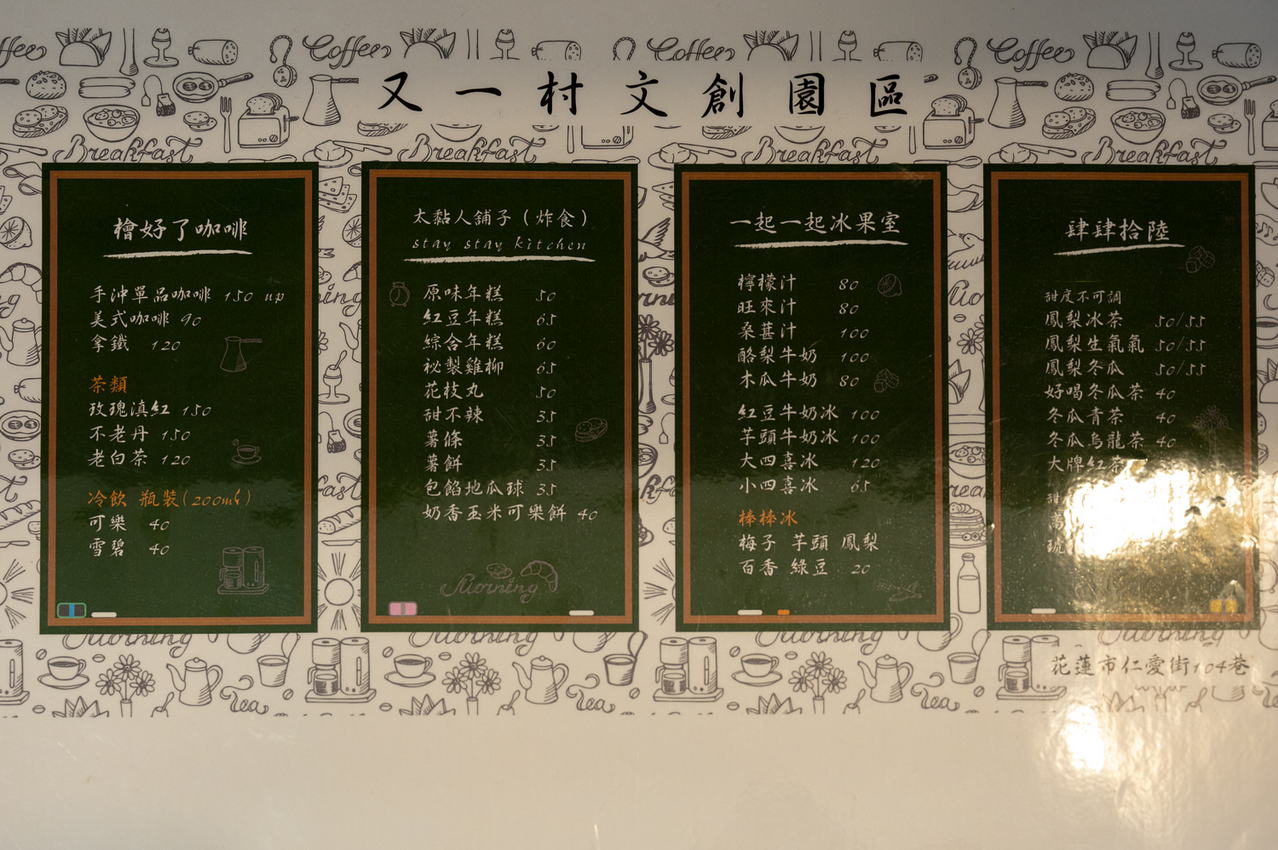 又一村文創園區
檜好了咖啡
手沖單品咖啡 150 up
美式咖啡 90
拿鐵 120
茶類
玫瑰滇紅 150
不老丹 150
老白茶 120
冷飲 瓶裝(200ml)
可樂 40
雪碧 40
太黏人舖子(炸食)
stay stay kitchen
原味年糕 50
紅豆年糕 65
綜合年糕 60
祕製雞柳 65
花枝丸 50
甜不辣 35
薯條 35
薯餅 35
包餡地瓜球 35
奶香玉米可樂餅 40
Morning
一起一起冰果室
檸檬汁 80
旺來汁 80
桑葚汁 100
酪梨牛奶 100
木瓜牛奶 80
紅豆牛奶冰 100
芋頭牛奶冰 100
大四喜冰 120
小四喜冰 65
棒棒冰
梅子 芋頭 鳳梨
百香 綠豆 20
肆肆拾陸
甜度不可調
鳳梨冰茶 50/55
鳳梨生氣氣 50/55
鳳梨冬瓜 50/55
好喝冬瓜茶 40
冬瓜青茶 40
冬瓜烏龍茶 40
大牌紅茶
花蓮市仁愛街104巷
Coffee Coffee Coffee
Breakfast Breakfast Breakfast
Morning Morning Morning
Tea Tea Tea